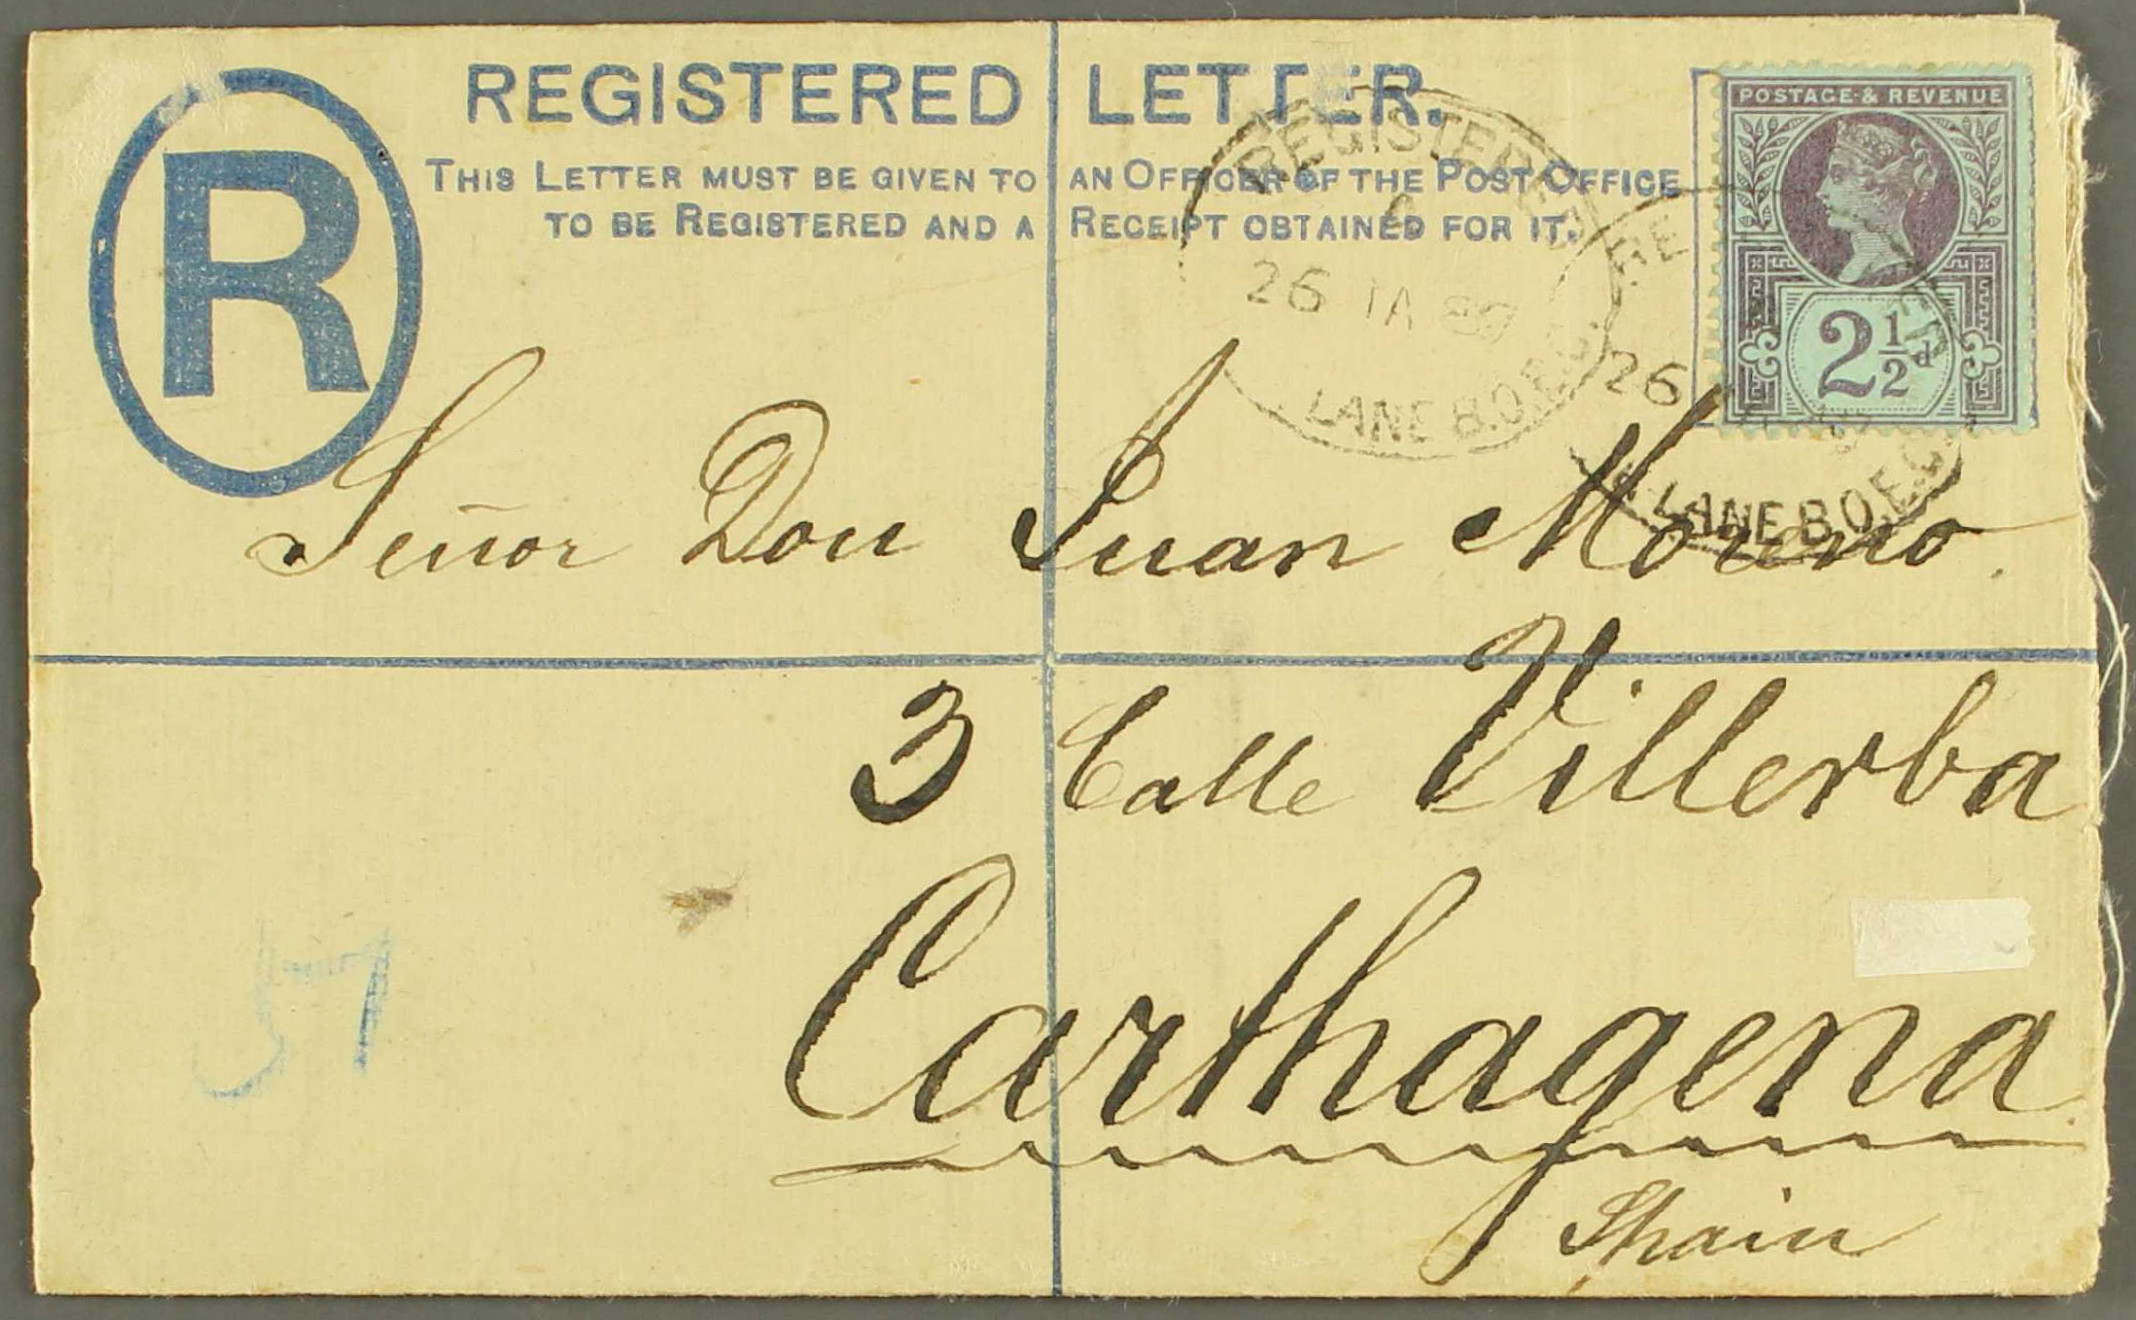 R
REGISTERED LETTER.
THIS LETTER MUST BE GIVEN TO AN OFFICER OF THE POST OFFICE
TO BE REGISTERED AND A RECEIPT OBTAINED FOR IT.
POSTAGE & REVENUE
2½d
REGISTERED
26 JA 89
LANE B.O.E.C.
RE
26
LANE B.O.E.C.
Señor Don Juan Moreno.
3 Calle Villerba
Carthagena
Spain
57